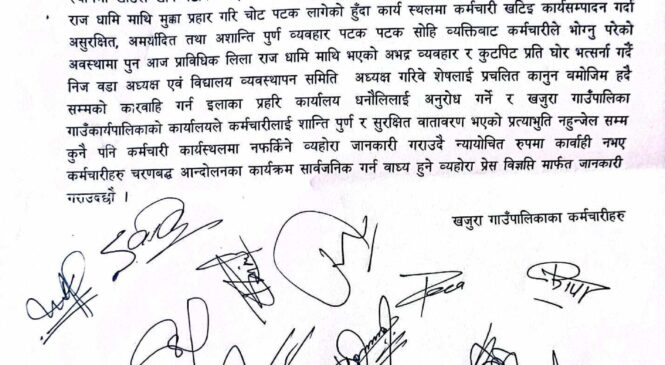 राज धामि माथि मुक्का प्रहार गरि चोट पटक लागेको हुँदा कार्य स्थलमा कर्मचारी खटिइ कार्यसम्पादन गर्दा
असुरक्षित, अमर्यादित तथा अशान्ति पुर्ण व्यवहार पटक पटक सोहि व्यक्तिबाट कर्मचारीले भोग्नु परेको
अवस्थामा पुन आज प्राविधिक लिला राज धामि माथी भएको अभद्र व्यवहार र कुटपिट प्रति घोर भर्त्सना गर्दै
निज वडा अध्यक्ष एवं विद्यालय व्यवस्थापन समिति अध्यक्ष गरिवे शेषलाई प्रचलित कानुन वमोजिम हदै
सम्मको कारवाहि गर्न इलाका प्रहरि कार्यालय धनौलिलाई अनुरोध गर्ने र खजुरा गाउँपालिका
गाउँकार्यपालिकाको कार्यालयले कर्मचारीलाई शान्ति पुर्ण र सुरक्षित वातावरण भएको प्रत्याभुति नहुन्जेल सम्म
कुनै पनि कर्मचारी कार्यस्थलमा नफर्किने व्यहोरा जानकारी गराउदै न्यायोचित रुपमा कार्वाही नभए
कर्मचारीहरु चरणबद्ध आन्दोलनका कार्यक्रम सार्वजनिक गर्न वाध्य हुने व्यहोरा प्रेस विज्ञप्ति मार्फत जानकारी
गराउदछौ ।
खजुरा गाउँपालिकाका कर्मचारीहरु